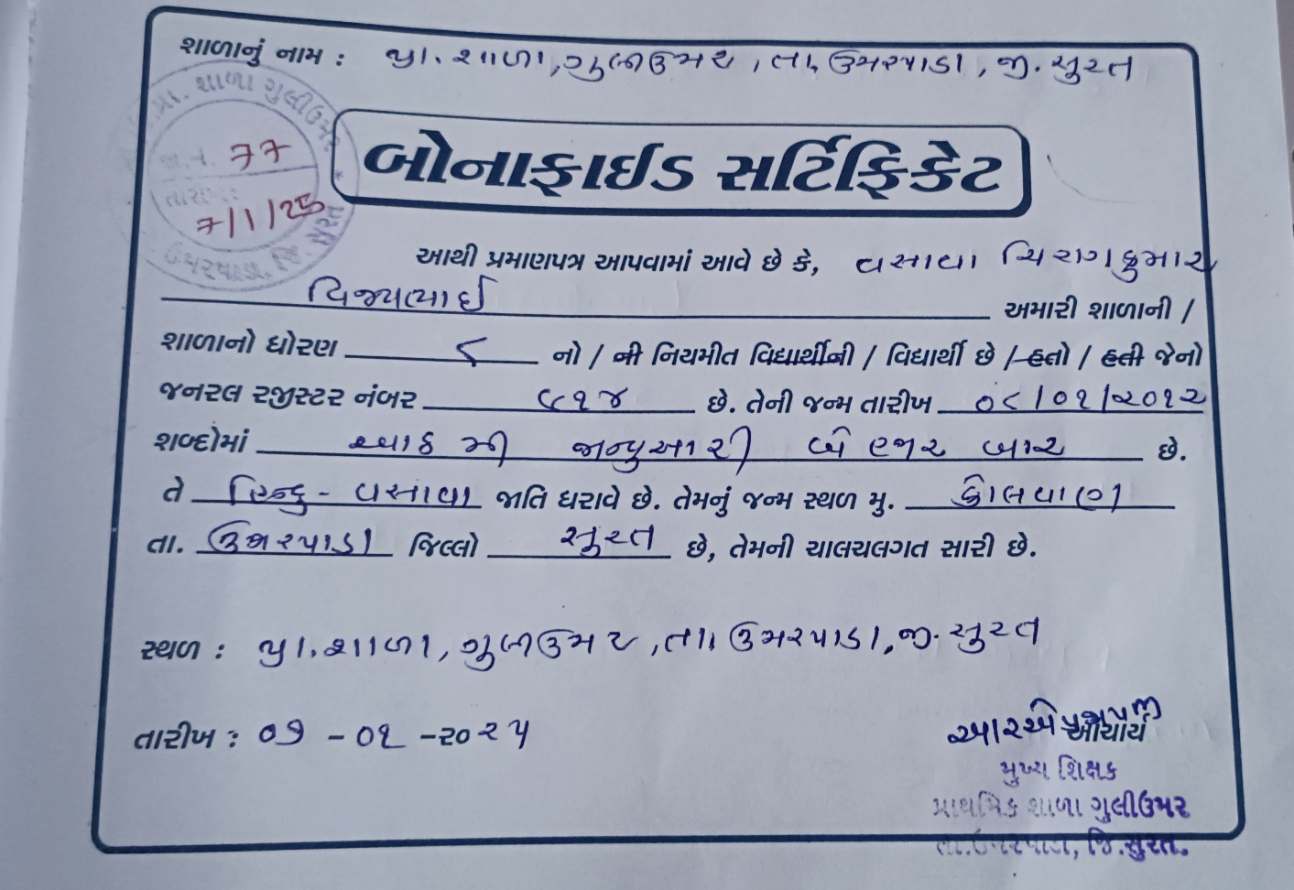 શાળાનું નામ : પ્રા. શાળા, ગુલીઉમર, તા. ઉમરપાડા, જી. સુરત
પ્રા. શાળા ગુલીઉમર
જા.નં. 77
તારીખ : 7/1/25
ઉમરપાડા, જિ. સુરત
બોનાફાઈડ સર્ટિફિકેટ
આથી પ્રમાણપત્ર આપવામાં આવે છે કે, વસાવા ચિરાગકુમાર
વિજયભાઈ અમારી શાળાની /
શાળાનો ધોરણ ૮ નો / ની નિયમીત વિદ્યાર્થીની / વિદ્યાર્થી છે / હતો / હતી જેનો
જનરલ રજીસ્ટર નંબર ૯૧૪ છે. તેની જન્મ તારીખ ૦૮/૦૧/૨૦૧૨
શબ્દોમાં આઠ મી જાન્યુઆરી બે હજાર બાર છે.
તે હિન્દુ - વસાવા જાતિ ધરાવે છે. તેમનું જન્મ સ્થળ મુ.
તા. ઉમરપાડા જિલ્લો સુરત છે, તેમની ચાલચલગત સારી છે.
સ્થળ : પ્રા. શાળા, ગુલીઉમર, તા. ઉમરપાડા, જી. સુરત
તારીખ : ૦૭ - ૦૧ - ૨૦૨૫
આચાર્ય
મુખ્ય શિક્ષક
પ્રાથમિક શાળા ગુલીઉમર
તા.ઉમરપાડા, જિ.સુરત.